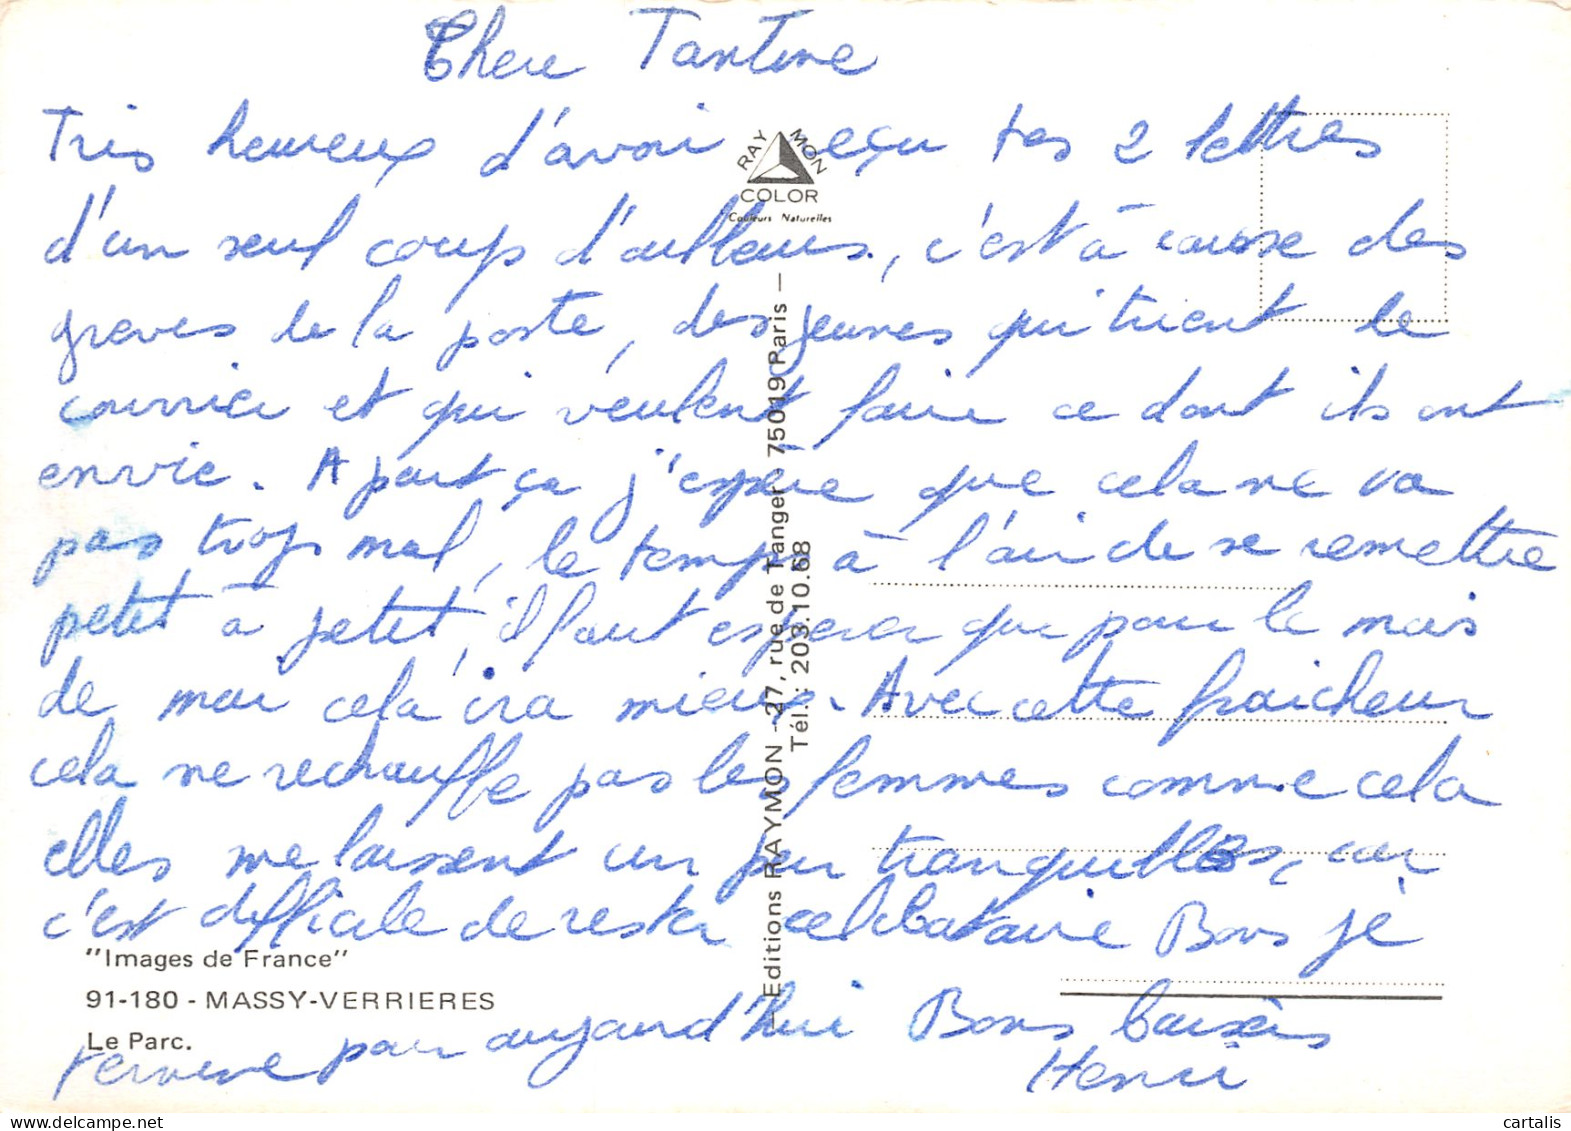 Chere Tantine
Très heureux d'avoir reçu tes 2 lettres
d'un seul coup d'ailleurs, c'est à cause des
greves de la poste, des jeunes qui trient le
courrier et qui veulent faire ce dont ils ont
envie. A part ça j'espère que cela ne va
pas trop mal, le temps à l'air de se remettre
petit à petit, il faut esperer que pour le mois
de mai cela ira mieux. Avec cette fraicheur
cela ne rechauffe pas les femmes comme cela
elles me laissent un peu tranquilles, car
c'est difficile de rester celibataire Bons je
termine pour aujourd'hui Bons baisers
Henri
RAYMON
COLOR
Couleurs Naturelles
— Editions RAYMON - 27, rue de Tanger - 75019 Paris —
Tél.: 203.10.68
"Images de France"
91-180 - MASSY-VERRIERES
Le Parc.
cartalis